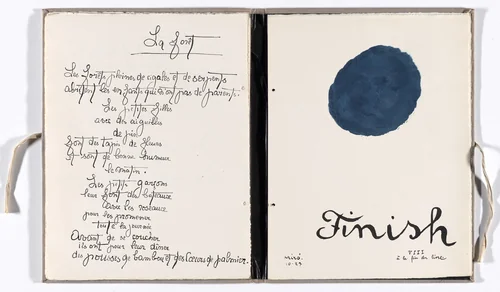 La forêt
Les forêts pleines de cigales et de serpents
abritent les enfants qui n'ont pas de parents.
Les petites filles
avec des aiguilles
de pin
font des tapis de fleurs
et sont de bonne humeur
le matin.
Les petits garçons
leur font des bateaux
avec les roseaux
pour les promener
toute la journée
Avant de se coucher
ils ont pour leur dîner
des pousses de bambou et des cœurs de palmier.
Finish
Miró.
VIII
à la fin du livre